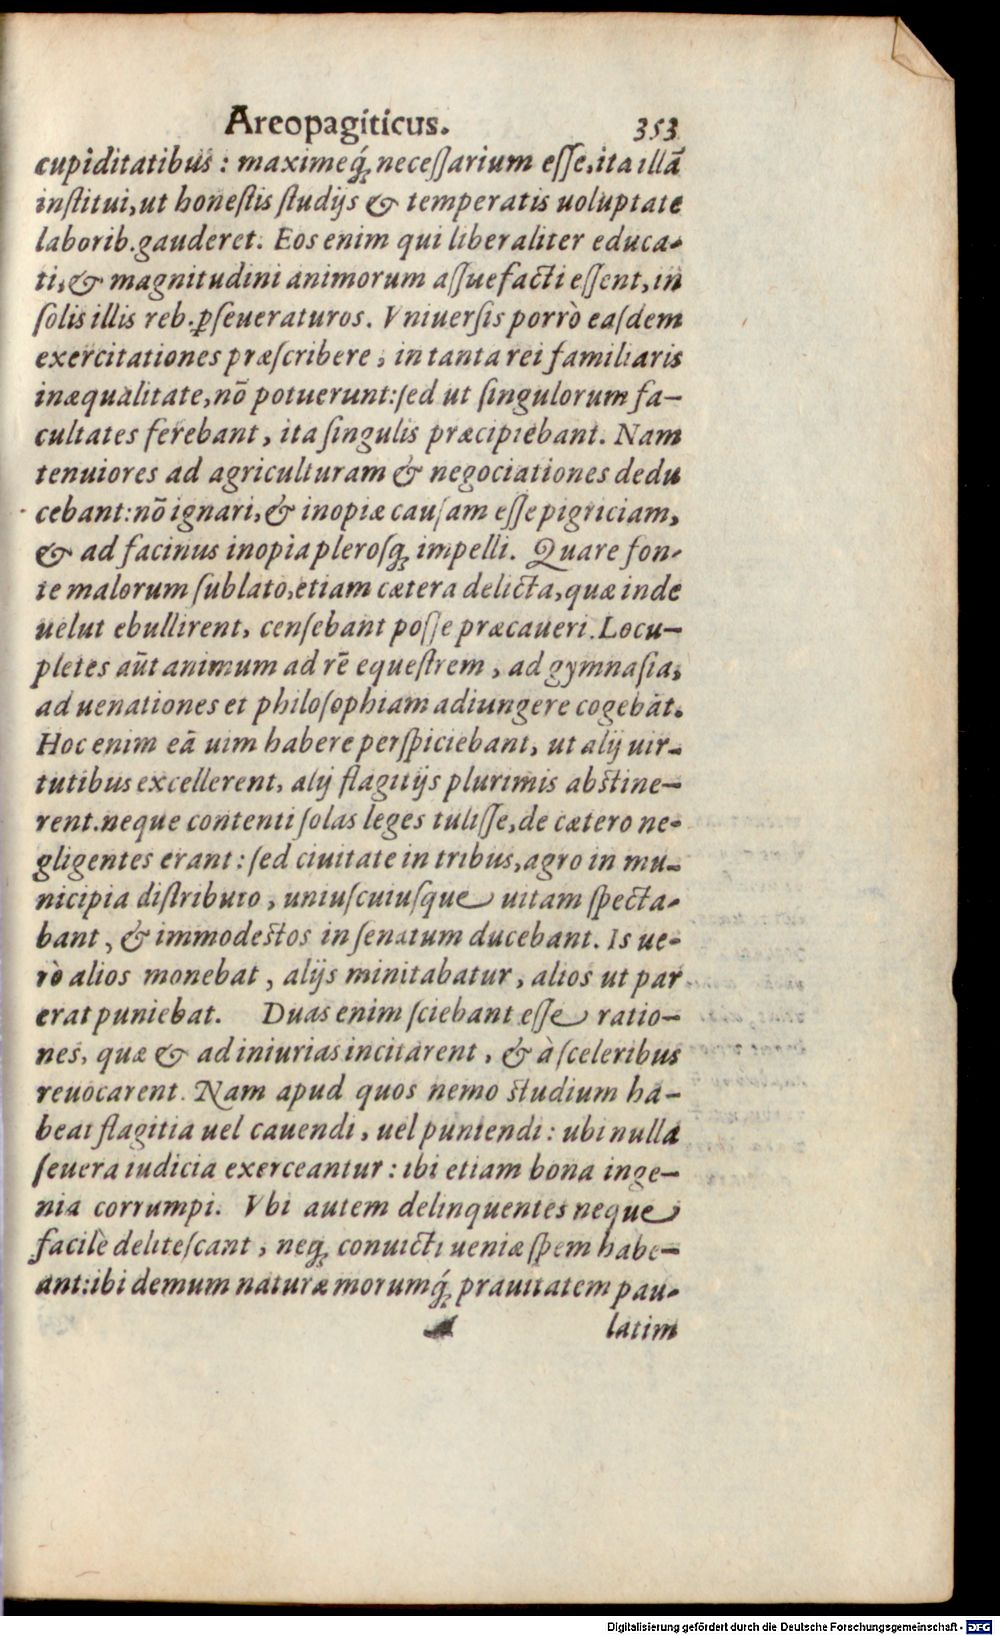 Areopagiticus. 353
cupiditatibus: maximeq́ꝫ neceſſarium eſſe, ita illā
inſtitui, ut honeſtis ſtudijs & temperatis uoluptate
laborib. gauderet. Eos enim qui liberaliter educa-
ti, & magnitudini animorum aſſuefacti eſſent, in
ſolis illis reb. ꝑſeueraturos. Vniuerſis porrò eaſdem
exercitationes præſcribere, in tanta rei familiaris
inæqualitate, nō potuerunt: ſed ut ſingulorum fa-
cultates ferebant, ita ſingulis præcipiebant. Nam
tenuiores ad agriculturam & negociationes dedu
cebant: nō ignari, & inopiæ cauſam eſſe pigriciam,
& ad facinus inopia pleroſqꝫ impelli. Quare fon-
te malorum ſublato, etiam cætera delicta, quæ inde
uelut ebullirent, cenſebant poſſe præcaueri. Locu-
pletes aūt animum ad rē equeſtrem, ad gymnaſia,
ad uenationes et philoſophiam adiungere cogebāt.
Hoc enim eā uim habere perſpiciebant, ut alij uir-
tutibus excellerent, alij flagitijs plurimis abſtine-
rent. neque contenti ſolas leges tuliſſe, de cætero ne-
gligentes erant: ſed ciuitate in tribus, agro in mu-
nicipia diſtributo, uniuſcuiuſque uitam ſpecta-
bant, & immodeſtos in ſenatum ducebant. Is ue-
rò alios monebat, alijs minitabatur, alios ut par
erat puniebat. Duas enim ſciebant eſſe ratio-
nes, quæ & ad iniurias incitarent, & à ſceleribus
reuocarent. Nam apud quos nemo ſtudium ha-
beat flagitia uel cauendi, uel puniendi: ubi nulla
ſeuera iudicia exerceantur: ibi etiam bona inge-
nia corrumpi. Vbi autem delinquentes neque
facilè deliteſcant, neqꝫ conuicti ueniæ ſpem habe-
ant: ibi demum naturæ morumq́ꝫ prauitatem pau-
latim
Digitalisierung gefördert durch die Deutsche Forschungsgemeinschaft - DFG